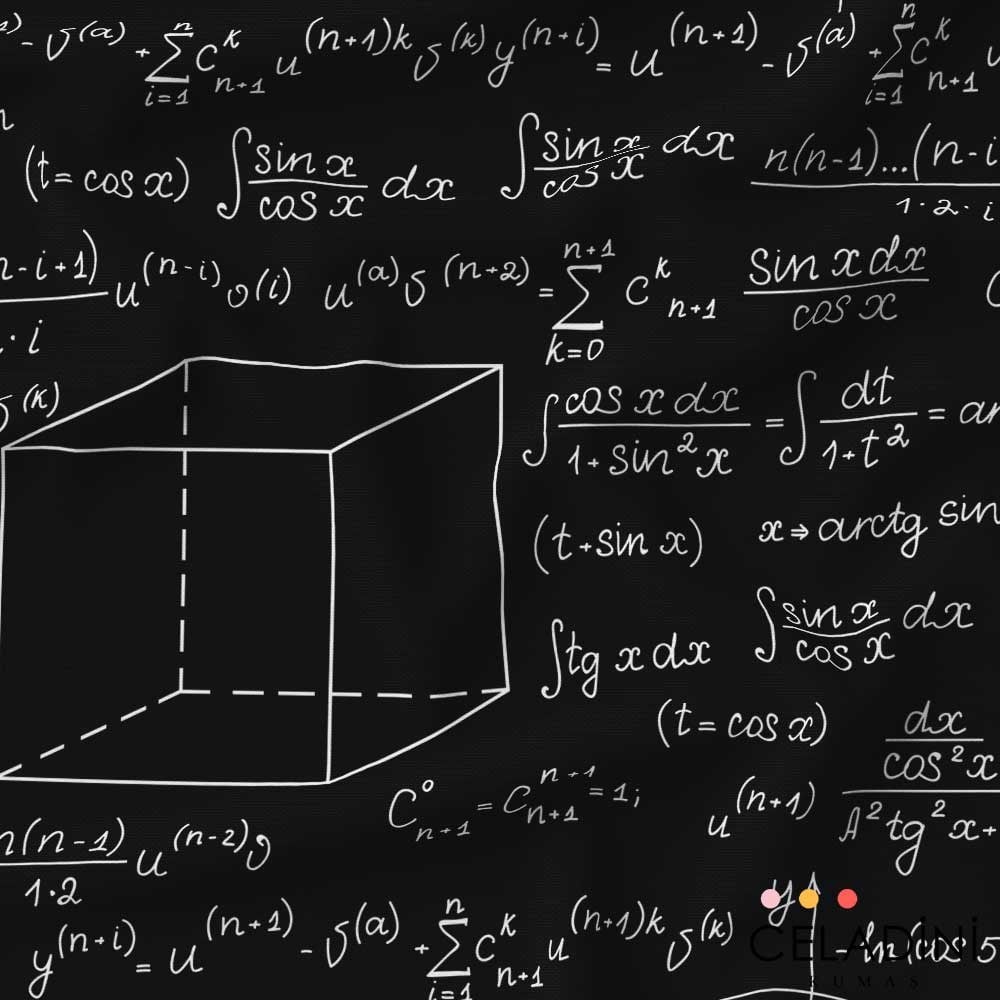 - υ⁽ᵃ⁾ + ∑ i=1 n C k n+1 u (n+1)k υ (k) y (n+i) = u (n+1) - υ (a) + ∑ i=1 n C k n+1
(t = cos x) ∫ sin x / cos x dx ∫ sin x / cos x dx n(n-1)...(n-i / 1·2·i
n-i+1) / · i u (n-i) υ(i) u (a) υ (n+2) = ∑ k=0 n+1 C k n+1 sin x dx / cos x
υ (k) ∫ cos x dx / 1+sin² x = ∫ dt / 1+t² = ar
(t+sin x) x ⇒ arctg sin
∫ tg x dx ∫ sin x / cos x dx
(t = cos x) dx / cos² x
C ° n+1 = C n+1 n+1 = 1; u (n+1) A² tg² x +
n(n-1) / 1·2 u (n-2) υ
y
y (n+i) = u (n+1) - υ (a) + ∑ i=1 n C k n+1 u (n+1)k υ (k) - ln(cos 5
CELADİNİ
KUMAŞ